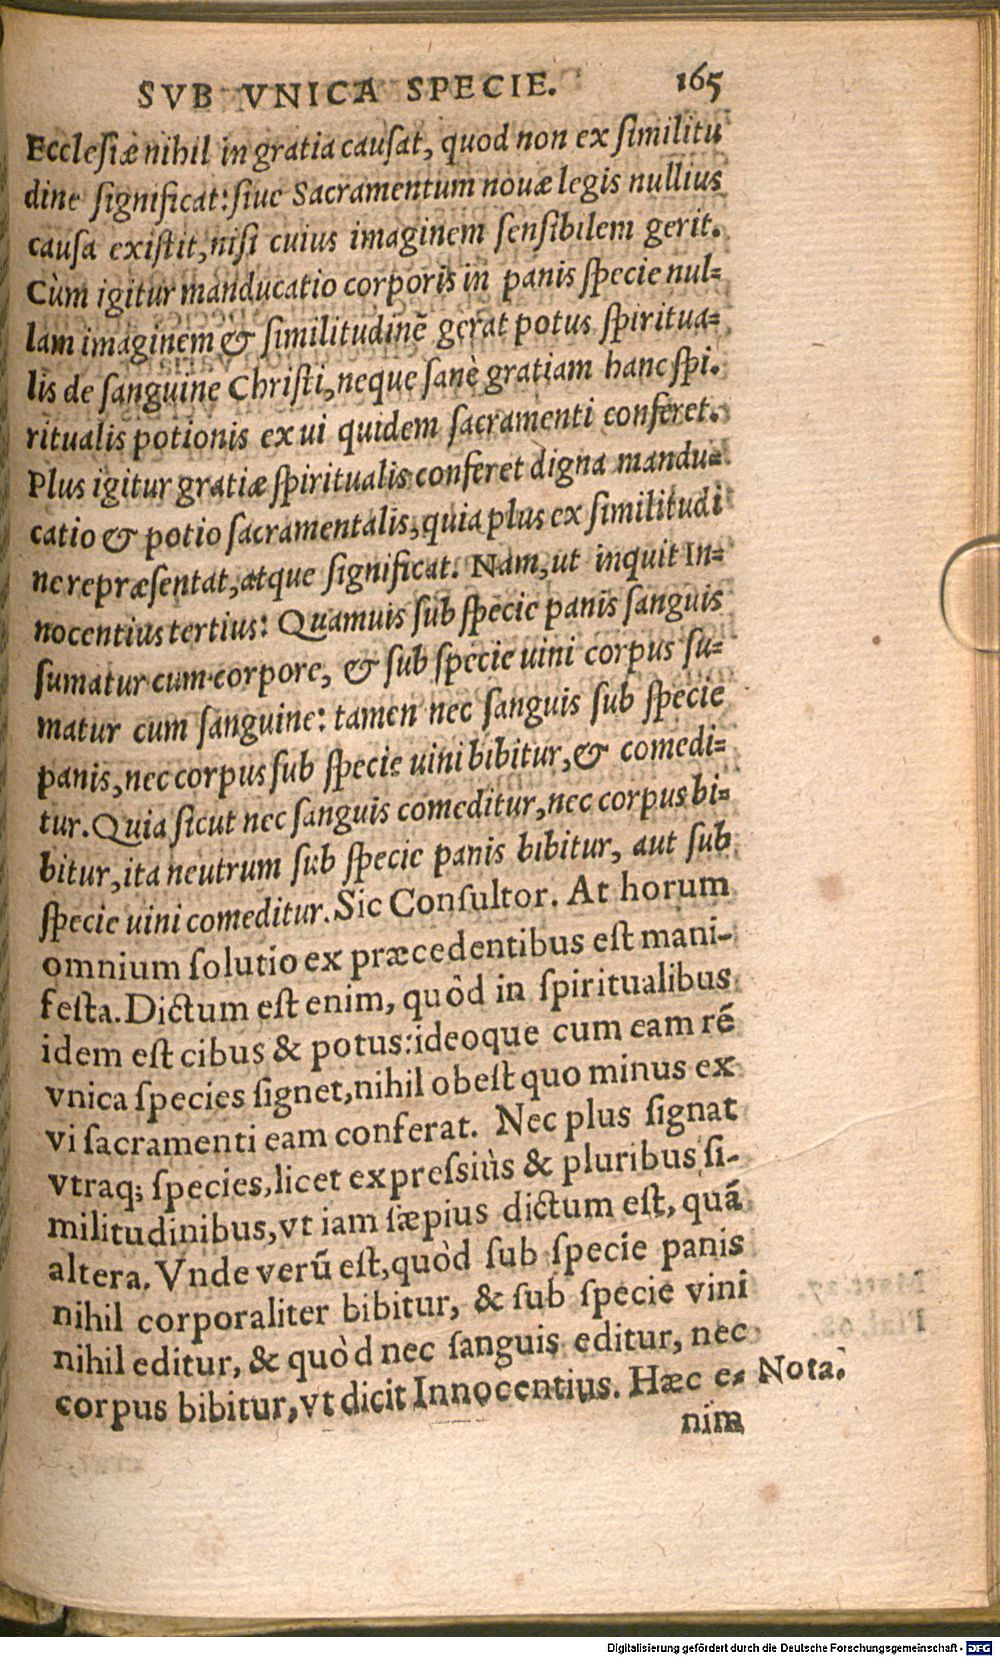 SVB VNICA SPECIE. 165
Ecclesiæ nihil in gratia causat, quod non ex similitu
dine significat: siue Sacramentum nouæ legis nullius
causa existit, nisi cuius imaginem sensibilem gerit.
Cùm igitur manducatio corporis in panis specie nul-
lam imaginem & similitudinē gerat potus spiritua-
lis de sanguine Christi, neque sanè gratiam hanc spi.
ritualis potionis ex ui quidem sacramenti conferet.
Plus igitur gratiæ spiritualis conferet digna mandu-
catio & potio sacramentalis, quia plus ex similitudi
ne repræsentat, atque significat. Nam, ut inquit In-
nocentius tertius: Quamuis sub specie panis sanguis
sumatur cum corpore, & sub specie uini corpus su-
matur cum sanguine: tamen nec sanguis sub specie
panis, nec corpus sub specie uini bibitur, & comedi-
tur. Quia sicut nec sanguis comeditur, nec corpus bi-
bitur, ita neutrum sub specie panis bibitur, aut sub
specie uini comeditur. Sic Consultor. At horum
omnium solutio ex præcedentibus est mani-
festa. Dictum est enim, quòd in spiritualibus
idem est cibus & potus: ideoque cum eam rē
vnica species signet, nihil obest quo minus ex
vi sacramenti eam conferat. Nec plus signat
vtraq; species, licet expressiùs & pluribus si-
militudinibus, vt iam sæpius dictum est, quã
altera. Vnde verũ est, quòd sub specie panis
nihil corporaliter bibitur, & sub specie vini
nihil editur, & quòd nec sanguis editur, nec
corpus bibitur, vt dicit Innocentius. Hæc e- Nota.
nim
Digitalisierung gefördert durch die Deutsche Forschungsgemeinschaft - DFG